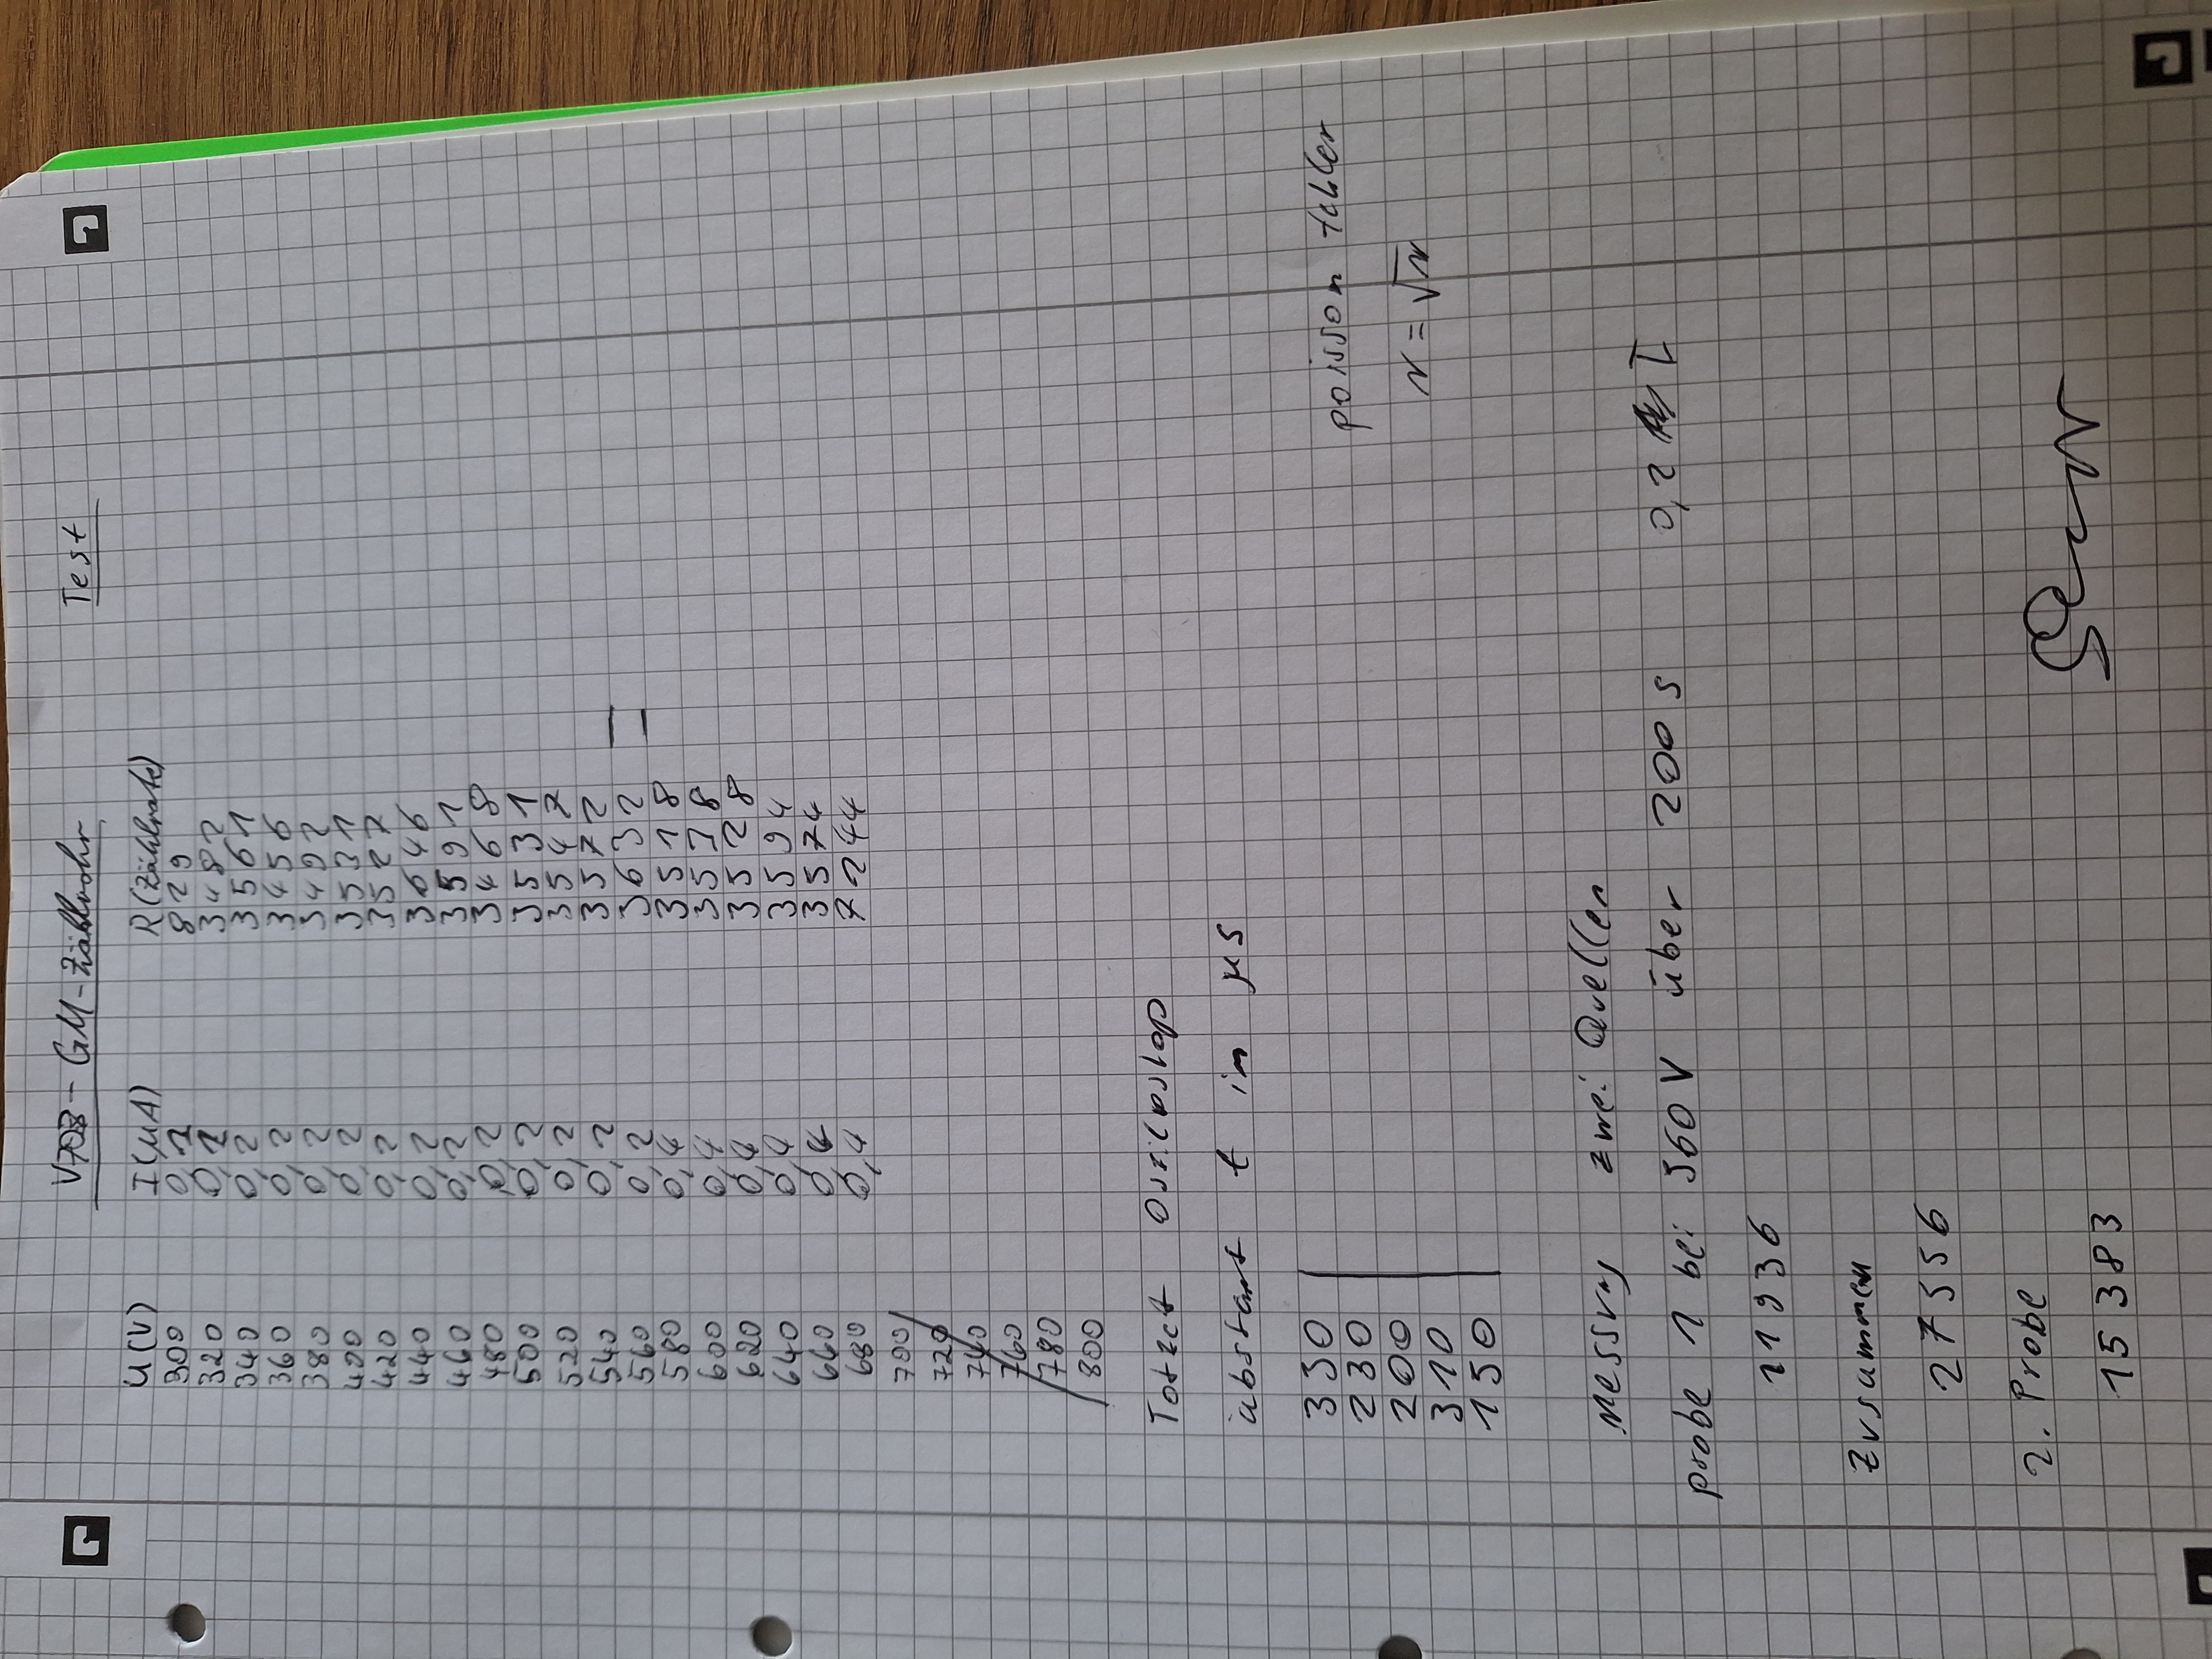 V703 - GM-Zählrohr Test
U(V) I(μA) R(Zählrate)
300 0,1 829
320 0,1 3482
340 0,2 3561
360 0,2 3456
380 0,2 3492
400 0,2 3531
420 0,2 3527
440 0,2 3646
460 0,2 3591
480 0,2 3468
500 0,2 3531
520 0,2 3547
540 0,2 3572
560 0,2 3632
580 0,4 3518
600 0,4 3578
620 0,4 3528
640 0,4 3594
660 0,4 3574
680 0,4 7244
700
720
740
760
780
800
Totzet Osziloskop
abstant t in μs
330
230
200
310
150
poisson fehler
N = √N
Messung zwei Quellen
probe 1 bei 560 V über 200 s 0,2 I
11936
Zusammen
27556
2. Probe
15383